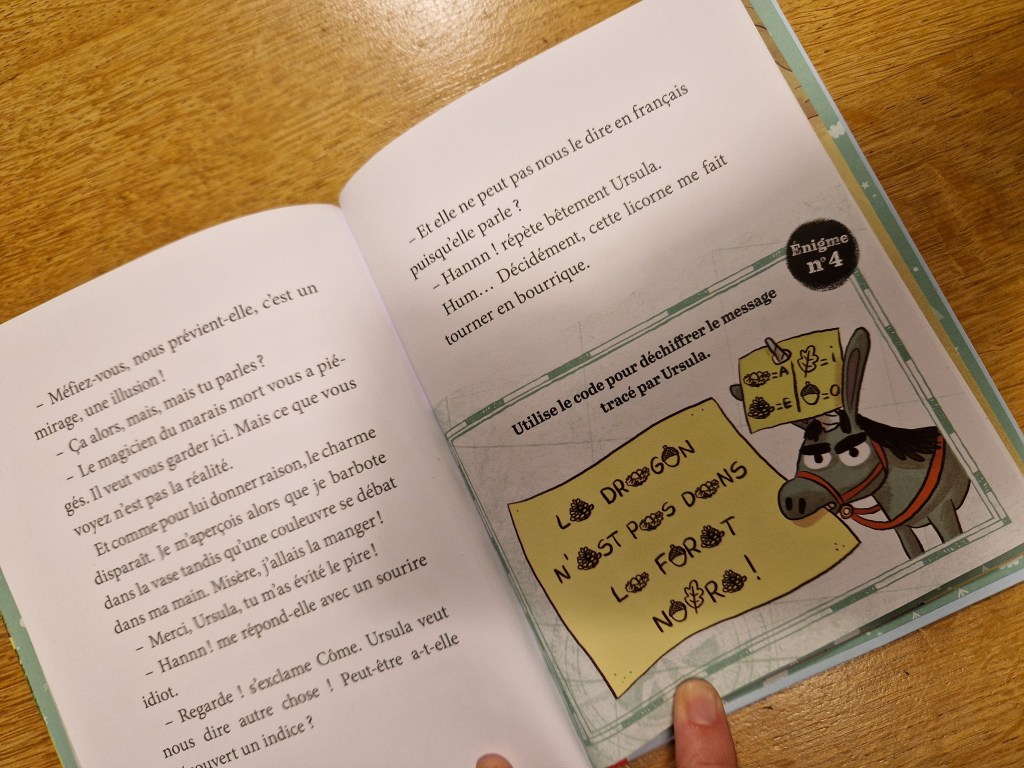 – Méfiez-vous, nous prévient-elle, c'est un
mirage, une illusion !
– Ça alors, mais, mais tu parles ?
– Le magicien du marais mort vous a pié-
gés. Il veut vous garder ici. Mais ce que vous
voyez n'est pas la réalité.
Et comme pour lui donner raison, le charme
disparaît. Je m'aperçois alors que je barbote
dans la vase tandis qu'une couleuvre se débat
dans ma main. Misère, j'allais la manger !
– Merci, Ursula, tu m'as évité le pire !
– Hannn ! me répond-elle avec un sourire
idiot.
– Regarde ! s'exclame Côme. Ursula veut
nous dire autre chose ! Peut-être a-t-elle
un indice ?
– Et elle ne peut pas nous le dire en français
puisqu'elle parle ?
– Hannn ! répète bêtement Ursula.
Hum… Décidément, cette licorne me fait
tourner en bourrique.
Énigme
n°4
Utilise le code pour déchiffrer le message
tracé par Ursula.
=A =i
=E =O
L DR G N
N' ST P S D NS
L F R T
N R !